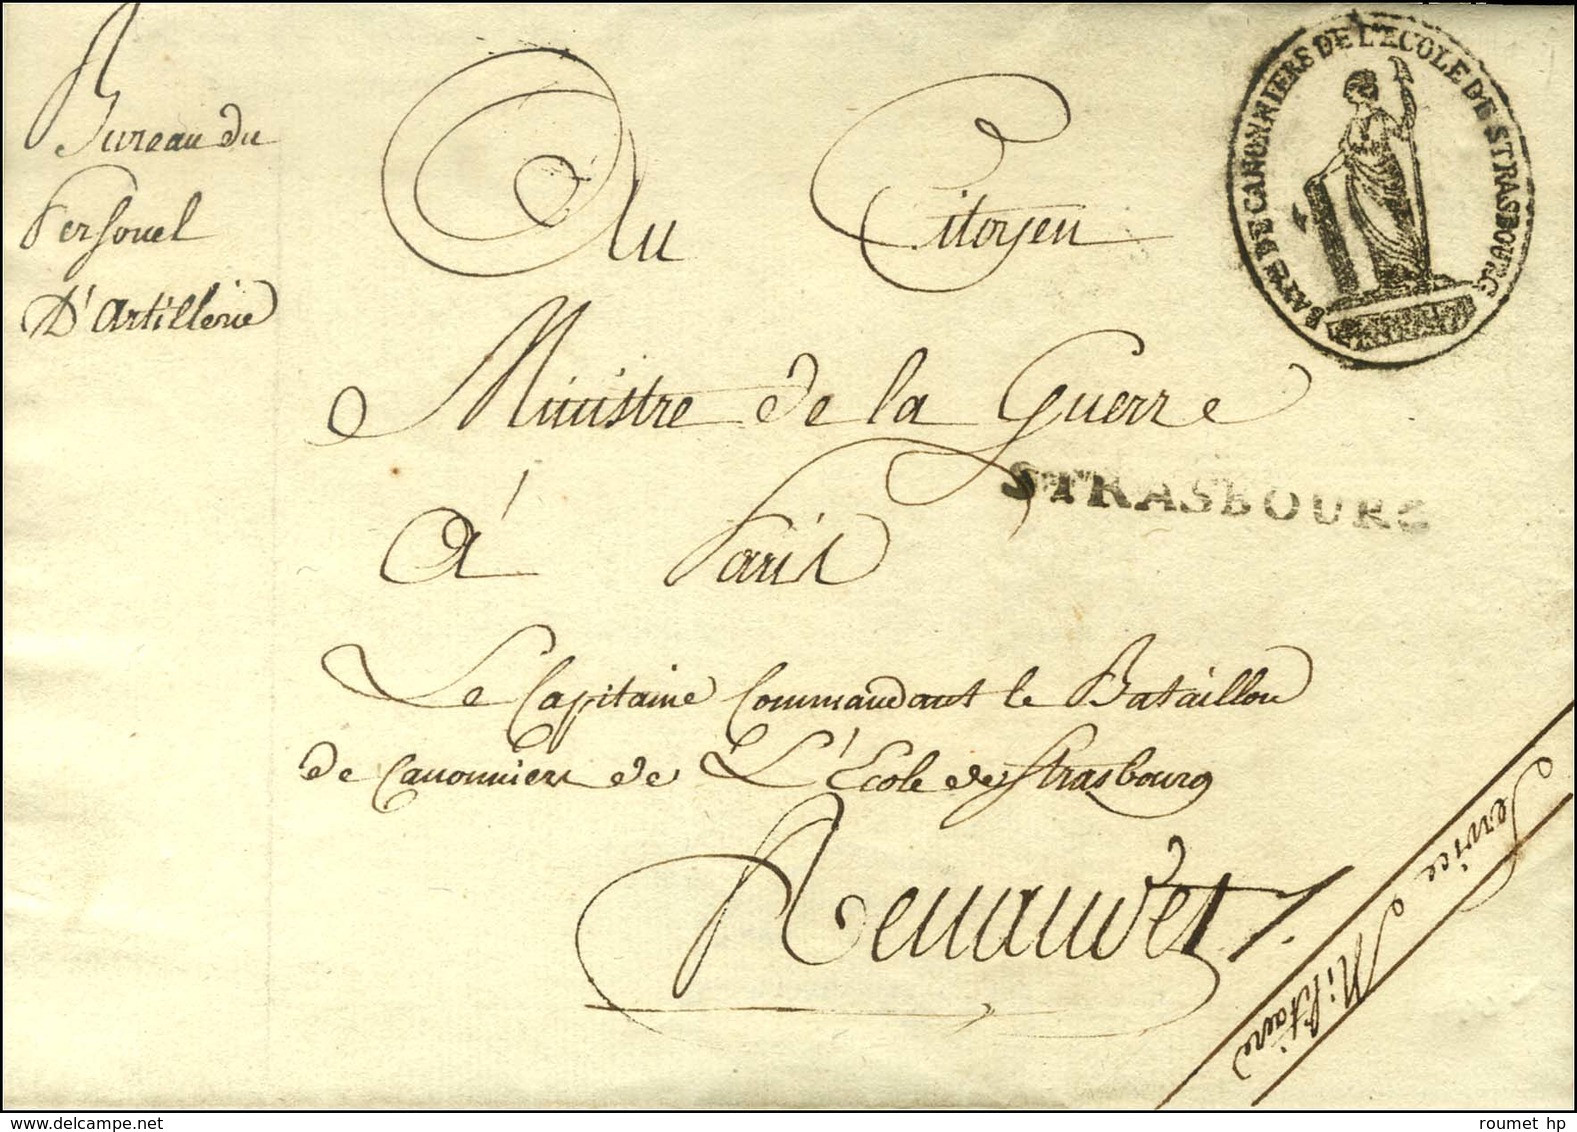 Bureau du
Personel
D'artillerie
Au Citoyen
BAT.ON DE CANONNIERS DE L'ECOLE DE STRASBOURG
Ministre de la Guerre
STRASBOURG
À Paris
Le Capitaine Commandant le Bataillon
de Canonniers de L'École de Strasbourg
Renaudet
Service
Militaire
www.delcampe.net
roumet hp